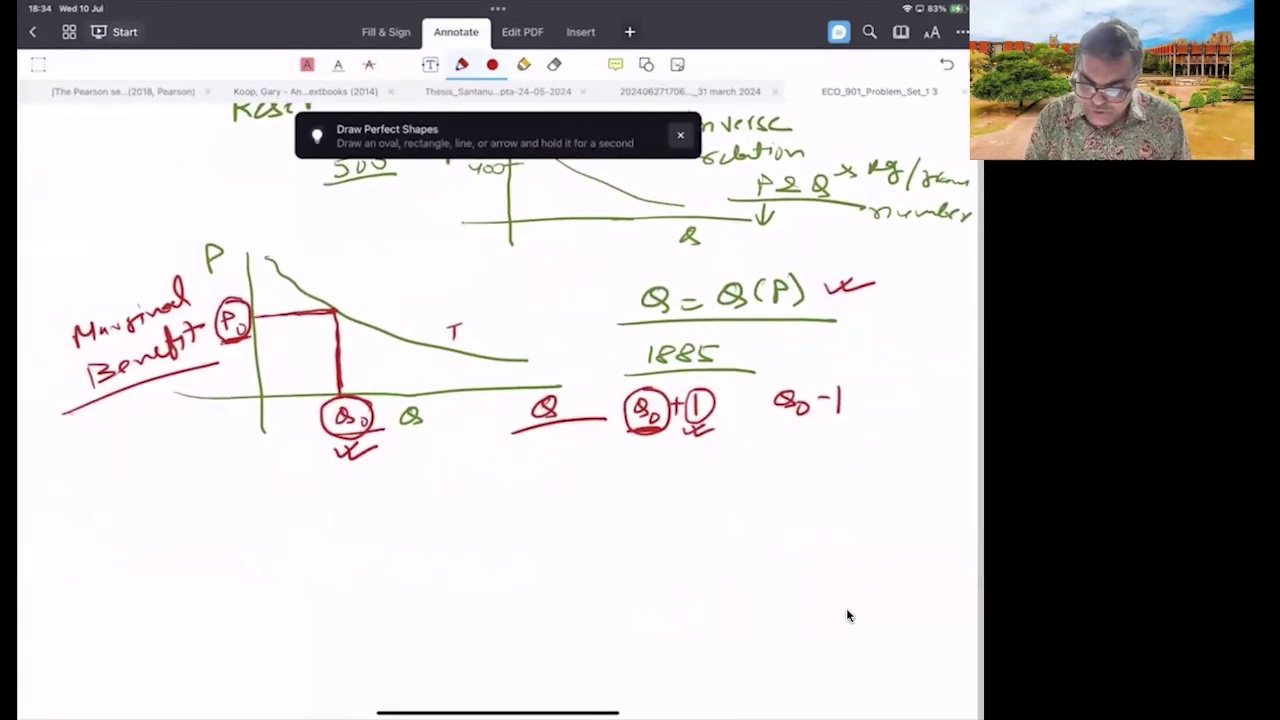 18:34 Wed 10 Jul
83%
Start
Fill & Sign
Annotate
Edit PDF
Insert
[The Pearson se...(2018, Pearson)
Koop, Gary - An...extbooks (2014)
Thesis_Santanu...pta-24-05-2024
202406271706..._31 march 2024
ECO_901_Problem_Set_1 3
Draw Perfect Shapes
Draw an oval, rectangle, line, or arrow and hold it for a second
500
400
nverse
relation
P & Q
Kg/
number
Q
P
Marginal
Benefit
P0
Q = Q(P)
1885
Q0
Q
Q
Q0 + 1
Q0 - 1